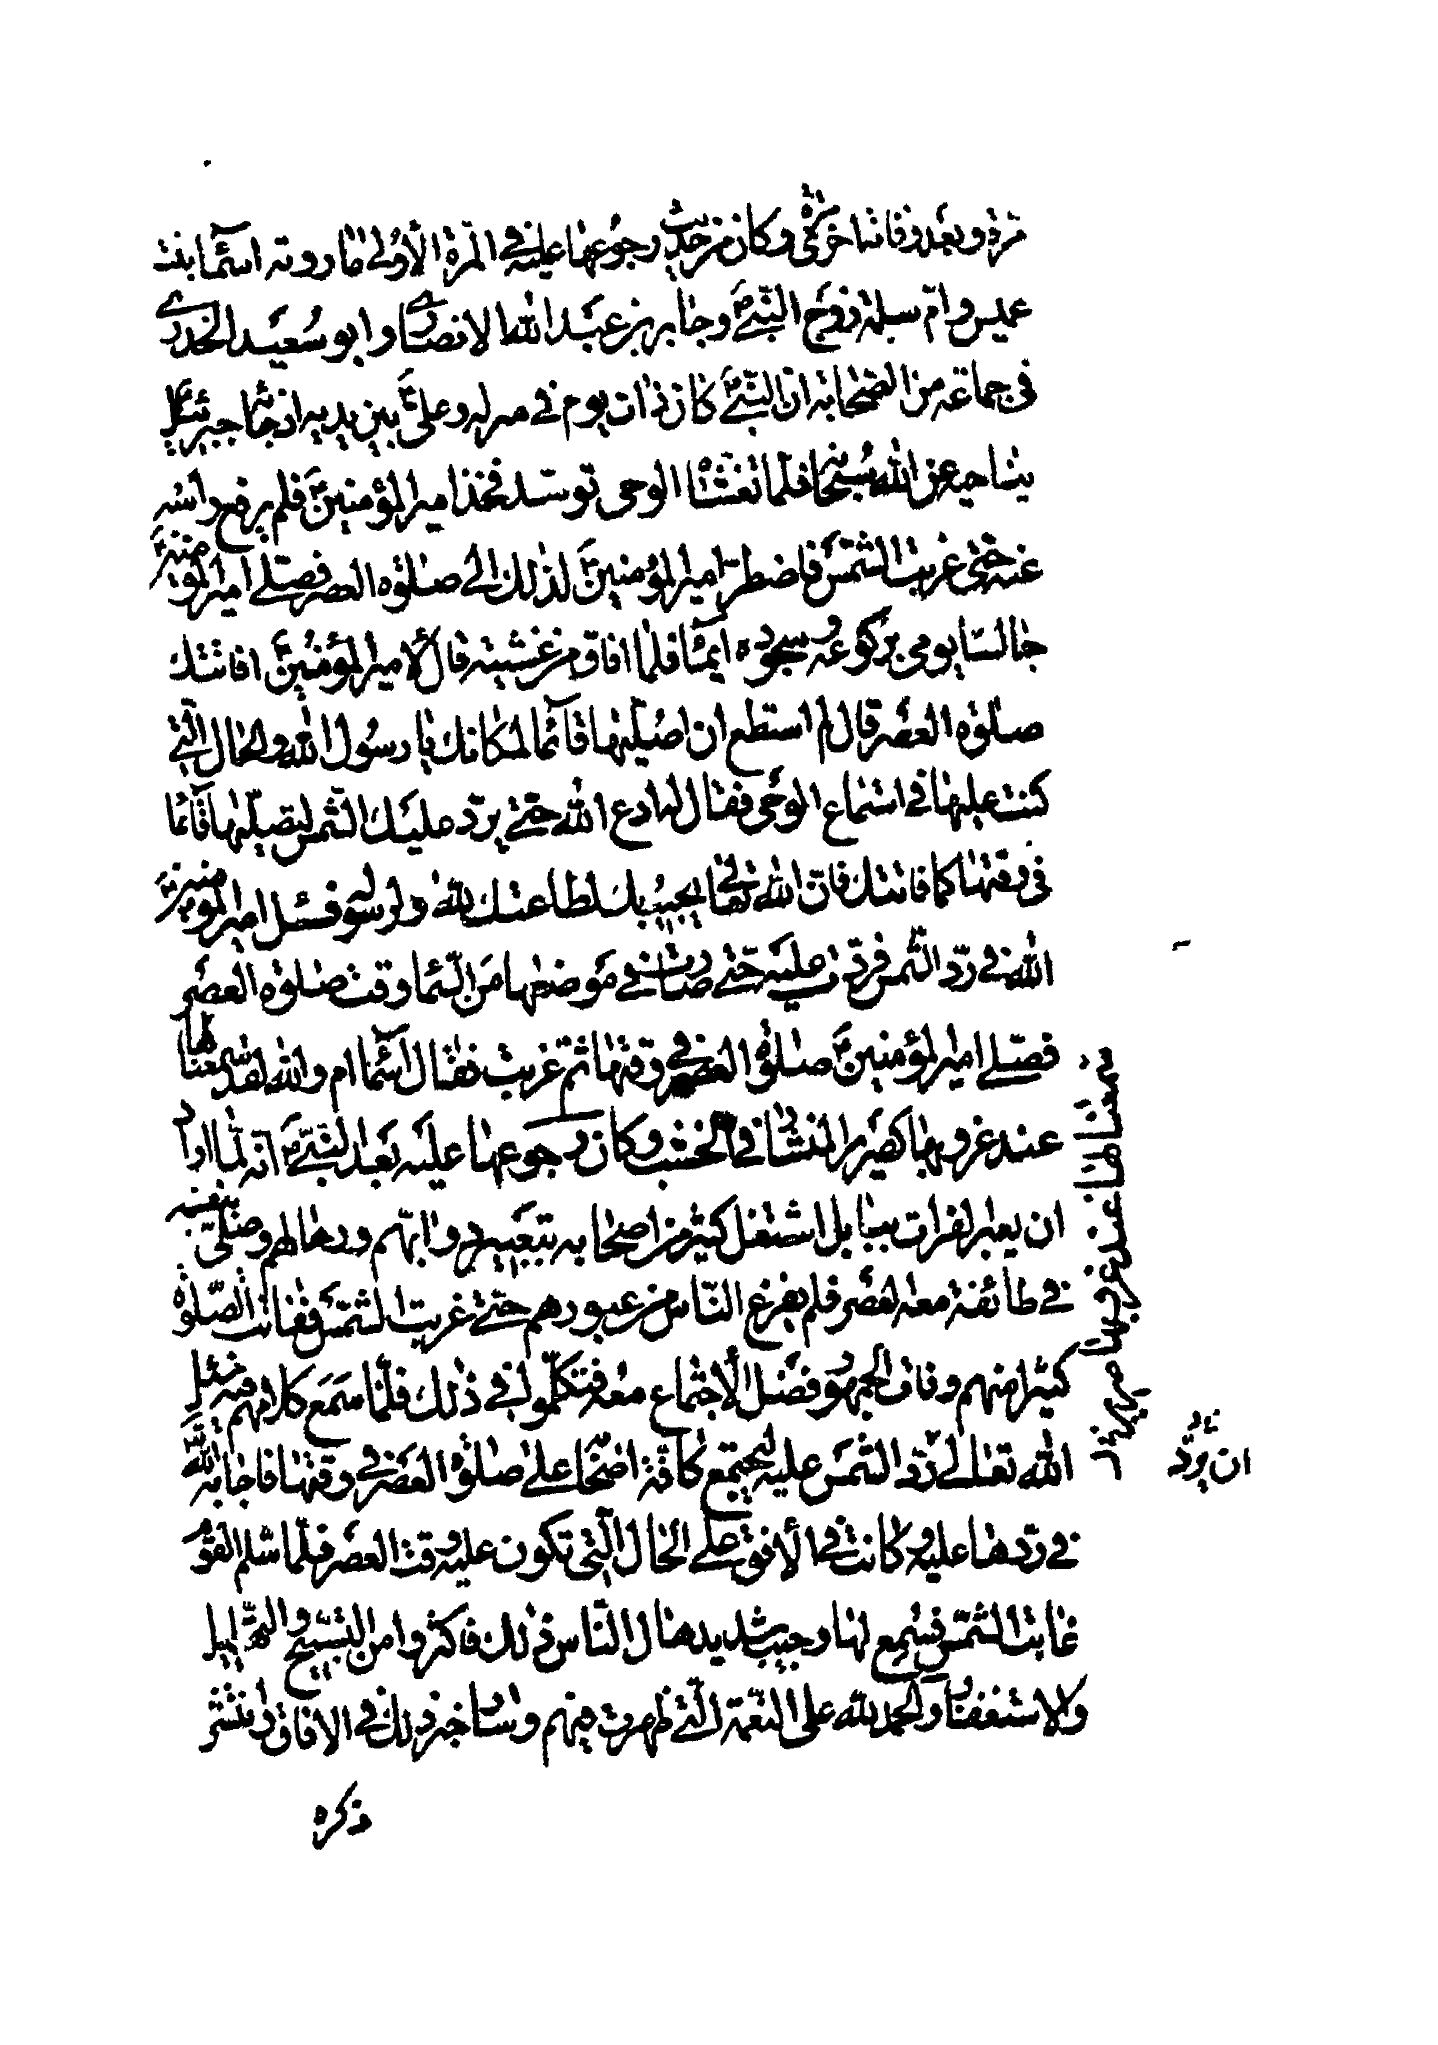 مرة وبعد وفاته مرة اخرى وكان من حديث رجوعها عليه في المرة الاولى ما روته اسما بنت
عميس وام سلمة زوج النبي ص وجابر بن عبد الله الانصاري وابو سعيد الخدري
في جماعة من الصحابة ان النبي ص كان ذات يوم في منزله وعلي ع بين يديه اذ جاه جبرئيل ع
يناجيه عن الله سبحانه فلما تغشاه الوحي توسد فخذ امير المؤمنين ع فلم يرفع راسه
عنه حتى غربت الشمس فاضطر امير المؤمنين ع لذلك الى صلوة العصر فصلى امير المؤمنين ع
جالسا يومي بركوعه وسجوده ايماء فلما افاق من غشيته قال لامير المؤمنين ع افاتتك
صلوة العصر قال لم استطع ان اصليها قائما لمكانك يا رسول الله والحال التي
كنت عليها في استماع الوحي فقال له ادع الله حتى يرد عليك الشمس لتصليها قائما
في وقتها كما فاتتك فان الله تعالى يجيبك لطاعتك لله ولرسوله فسئل امير المؤمنين ع
الله في رد الشمس فردت عليه حتى صارت في موضعها من السما وقت صلوة العصر
فصلى امير المؤمنين ع صلوة العصر في وقتها ثم غربت فقال اسما ام والله لقد سمعنا لها
عند غروبها كصرير المنشار في الخشب وكان رجوعها عليه بعد النبي ص انه لما اراد
ان يعبر الفرات ببابل اشتغل كثير من اصحابه بتعبير دوابهم ورحالهم وصلى بنفسه
في طائفة معه العصر فلم يفرغ الناس من عبورهم حتى غربت الشمس ففاتت الصلوة
كثيرا منهم وفات الجمهور فضل الاجتماع معه فتكلموا في ذلك فلما سمع كلامهم فيه سئل
الله تعالى رد الشمس عليه ليجتمع كافة اصحابه على صلوة العصر في وقتها فاجابه الله تع
في ردها عليه وكانت في الافق على الحال التي تكون عليه وقت العصر فلما سلم القوم
غابت الشمس فسمع لها وجيب شديد هال الناس ذلك فاكثروا من التسبيح والتهليل
والاستغفار والحمد لله على النعمة التي ظهرت فيهم وسار خبر ذلك في الافاق وانتشر
ذكره
سمعنا لها عند غروبها صريرا
ان يرد